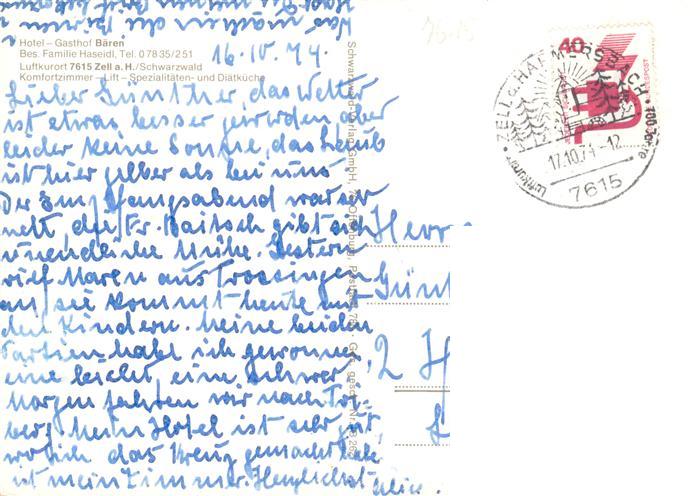 Hotel – Gasthof Bären
Bes. Familie Haseidl, Tel. 07835/251
Luftkurort 7615 Zell a. H./Schwarzwald
Komfortzimmer – Lift – Spezialitäten- und Diätküche
16.10.74.
Lieber Günther, das Wetter
ist etwas besser geworden aber
leider keine Sonne, das Laub
ist hier gelber als bei uns
Der Empfangsabend war sehr
nett, die Fr. Baitsch gibt sich
unendliche Mühe. Gestern
rief Maren aus Trossingen
an sie kommt heute mit
den Kindern. Meine beiden
Partien habe ich gewonnen,
eine leicht, eine schwer
Morgen fahren wir nach Tri-
berg. Mein Hotel ist sehr gut,
wo ich das Kreuz gemacht habe
ist mein Zimmer. Herzlichst
Schwarzwald-Verlag GmbH, Offenburg, Postfach
Herr
Günt
2 H
40
ZELL a. HARMERSBACH
700 Jahre
Luftkurort
17.10.74-12
7615